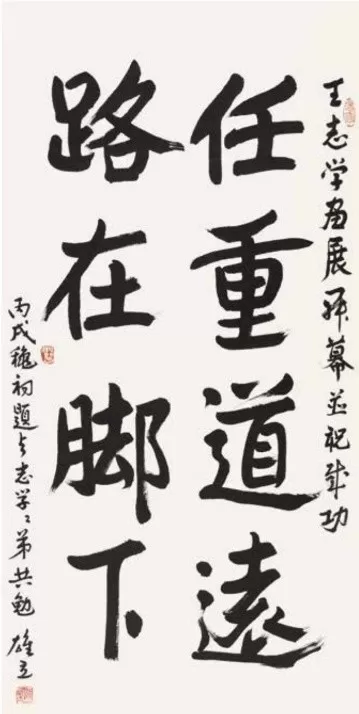 王志学画展幕並祝成功
任重道遠
路在脚下
丙戌穐初題与志学〻弟共勉 雄立